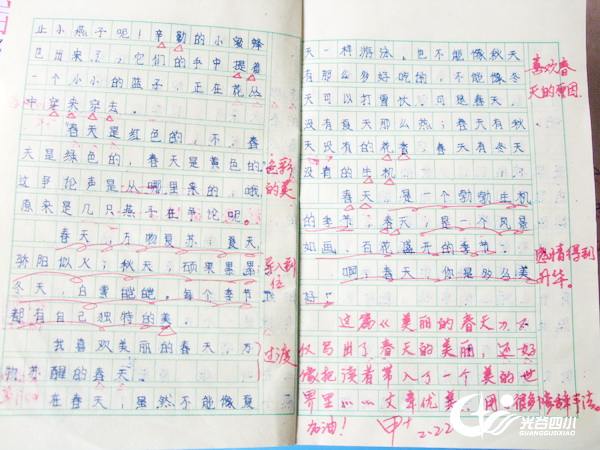 止小燕子呢！辛勤的小蜜蜂
也出来了，它们的手中提着
一个小小的篮子，正在花丛
中穿来穿去。
“春天是红色的，不，春
天是绿色的，春天是黄色的。”
这争论声是从哪里来的，哦，
原来是几只燕子在争论呢。
春天，万物复苏；夏天，
骄阳似火；秋天，硕果累累；
冬天，白雪皑皑。每个季节
都有自己独特的美。
我喜欢美丽的春天，万
物苏醒的春天。
在春天，虽然不能像夏
色彩
的美
导入到
位
过渡
天一样游泳，也不能像秋天
有那么多好吃的，不能像冬
天可以打雪仗，可是春天，
没有夏天那么热；春天有秋
天没有的花香，春天有冬天
没有的生机。
春天，是一个勃勃生机
的季节；春天，是一个风景
如画、百花盛开的季节。
啊，春天，你是多么美
好！
喜欢春
天的原因
感情得到
升华。
这篇《美丽的春天》不
仅写出了春天的美丽，还好
像把读者带入了一个美的世
界里……文章优美，用了很多修辞手法。
加油！
甲+
2.22
光谷四小
GUANGGUSIXIAO